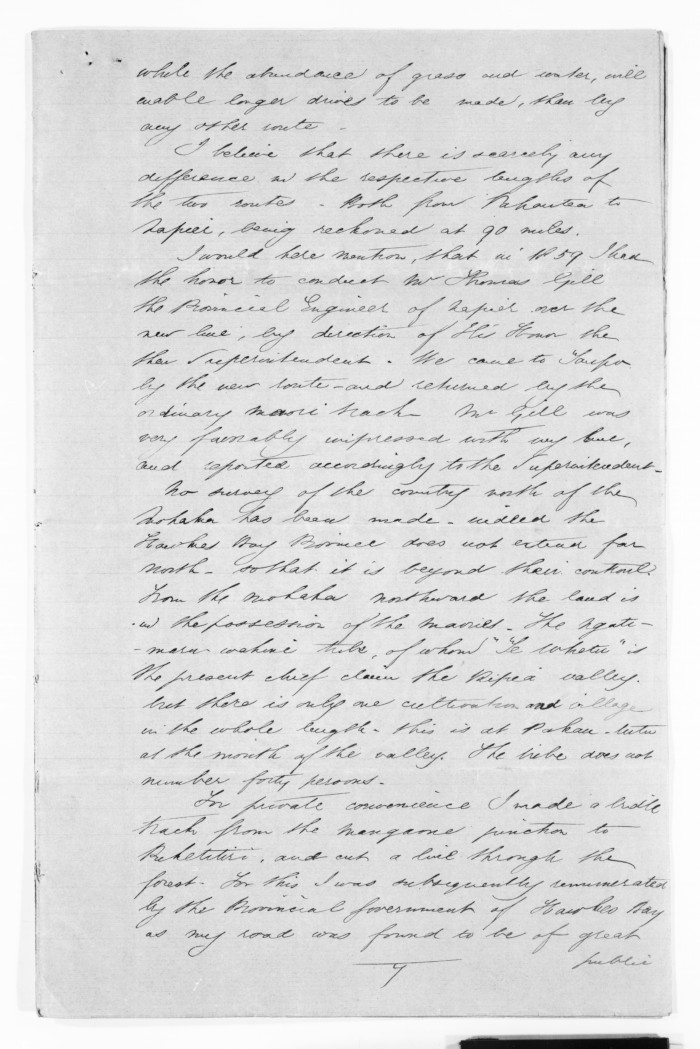 while the abundance of grass and water, will
enable longer drives to be made, than by
any other route -
I believe that there is scarcely any
difference in the respective lengths of
the two routes - Both from to
Napier, being reckoned at 90 miles.
I would here mention, that in 1859 I had
the honor to conduct Mr Thomas Gill
the Provincial Engineer of Napier over the
new line, by direction of His Honor the
then Superintendent - We came to Taupo
by the new route - and returned by the
ordinary maori track - Mr Gill was
very favorably impressed with my line,
and reported accordingly to the Superintendent -
No survey of the country north of the
Mohaka has been made - indeed the
Hawkes Bay Province does not extend far
north - so that it is beyond their control.
From the Mohaka northward the land is
in the possession of the maories - The Ngate-
-maru-wahine tribe, of whom "Te Whetu" is
the present chief claim the Ripia valley.
but there is only one cultivation and village
in the whole length - this is at Pakau-tutu
at the mouth of the valley. The tribe does not
number forty persons -
For private convenience I made a bridle
track from the Mangaone junction to
Puketitiri, and cut a line through the
forest - For this I was subsequently remunerated
by the Provincial Government of Hawkes Bay
as my road was found to be of great
public
7